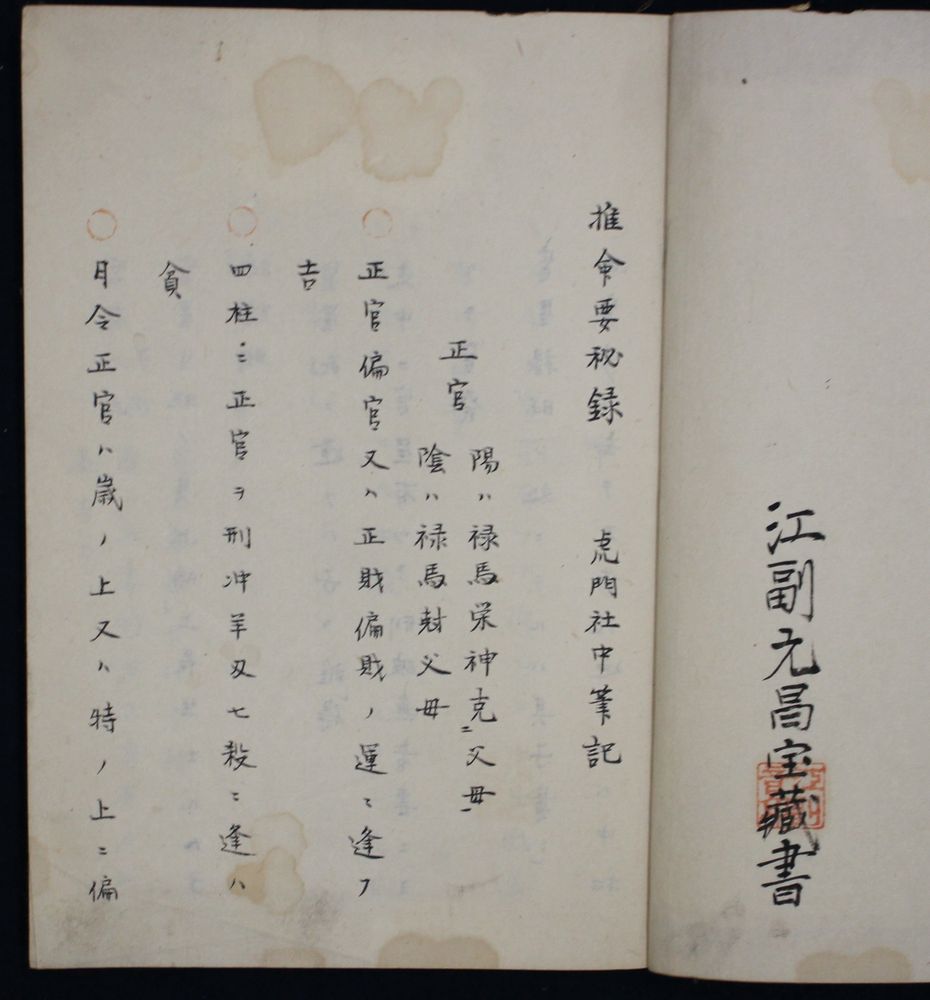 江副元昌宝藏書
推命要秘録 虎門社中筆記
正官
陽ハ禄馬栄神克ニ父母
陰ハ禄馬尅父母
○ 正官偏官又ハ正財偏財ノ運ニ逢フ
吉
○ 四柱ニ正官ヲ刑冲羊刄七殺ニ逢ハ
貧
○ 月令正官ハ歳ノ上又ハ特ノ上ニ偏